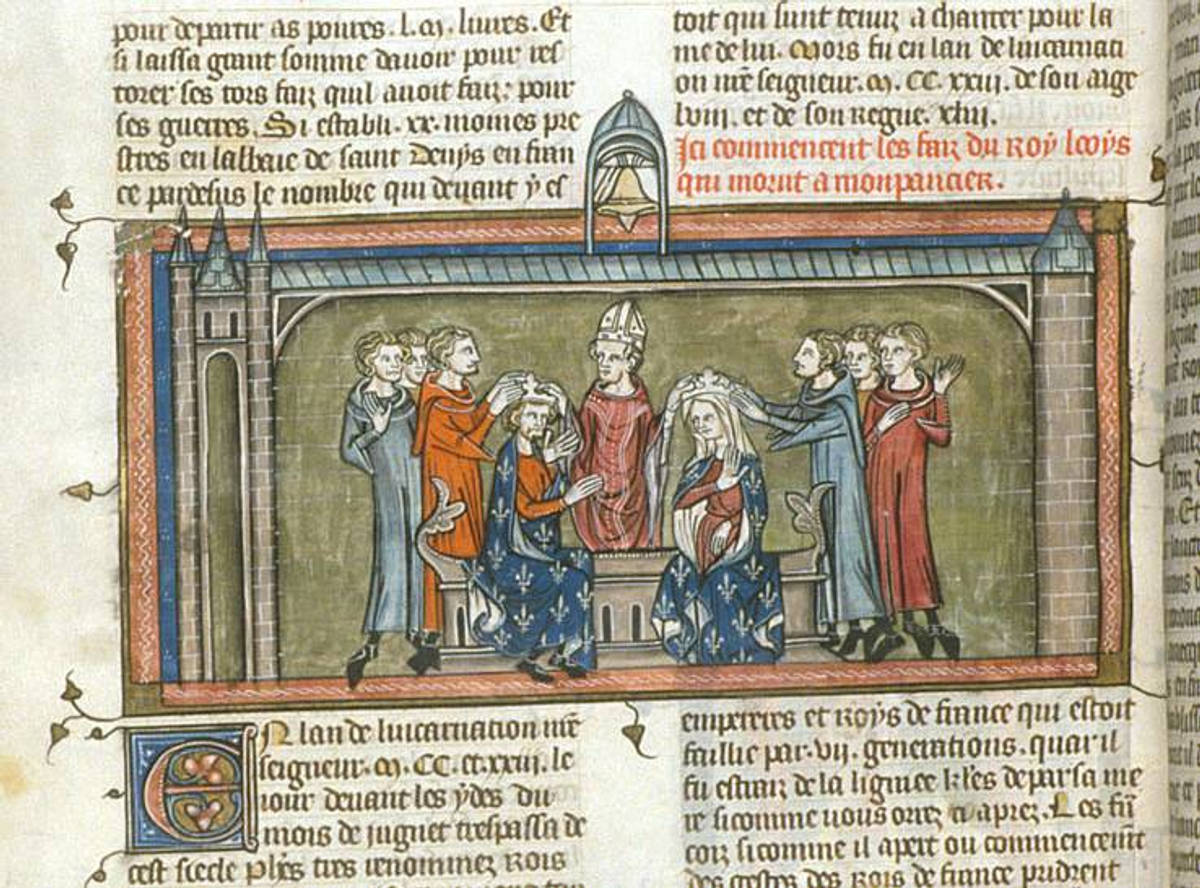 pour departir as poures . l. m. liures. Et
si laissa grant somme dauoir pour res
torer ses tors faiz quil auoit faiz: pour
ses guerres. Si establi .xx. moines pre
stres en labbaie de saint Denys en fran
ce pardesus le nombre qui deuant y es
toit qui sunt tenuz a chanter pour la
me de lui. Mors fu en lan de luicarnaci
on nre seigneur. m. CC. xxiii. de son aige
lviii. et de son regne. xliii.
Ici commencent les faiz du roy looys
qui morut a monpancier.
EN lan de luicarnation nre
seigneur. m. CC. et xxiii. le
iour deuant les ydes du
mois de jugnet trespassa de
cest siecle phes tres renommez rois
empereres et roys de france qui estoit
faillie par .vii. generations. quar il
fu estraiz de la lignee kles de par sa me
re si comme vous orrez ci aprez. Les fn
coiz si comme il apert ou commencemt
des gestes des rois de france prudrent